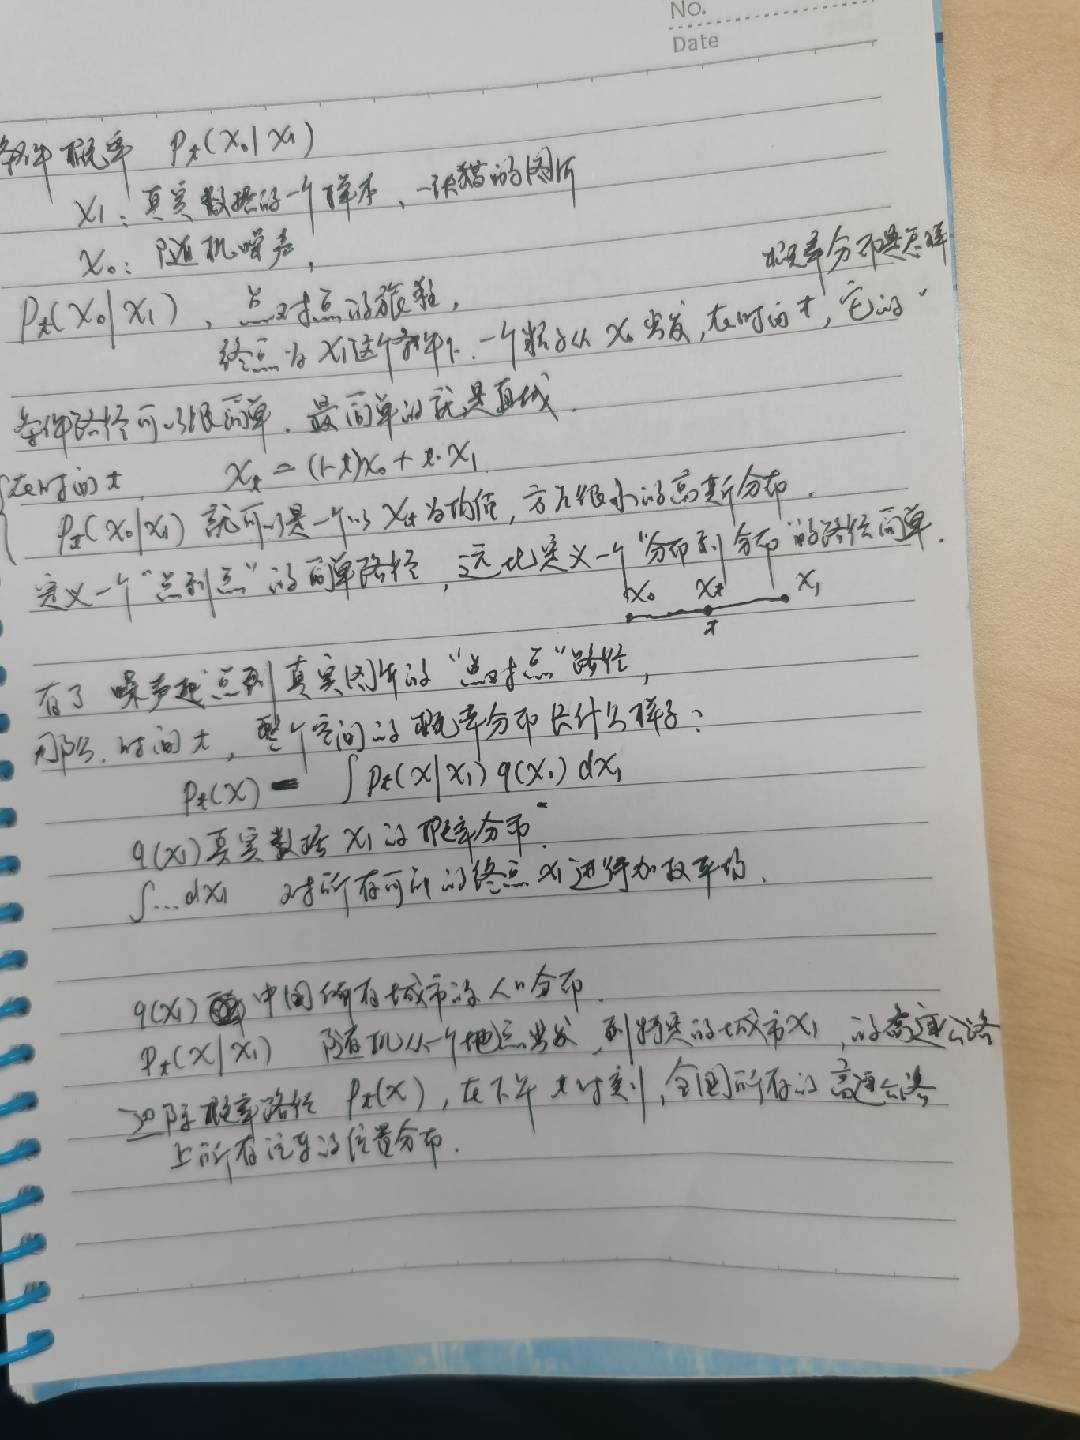 No.
Date
条件概率 Pt(x₀|x₁)
x₁: 真实数据的一个样本、一张猫的图片
x₀: 随机噪声,
概率分布是怎样
Pt(x₀|x₁), 点对点的旅程,
终点为x₁这个条件下.一个粒子从x₀出发,在时间t,它的
条件路径可以很简单.最简单的就是直线.
在时间t, xt = (1-t)x₀ + t·x₁
Pt(x₀|x₁) 就可以是一个以xt为均值,方差很小的高斯分布.
定义一个“点到点”的简单路径,远比定义一个“分布到分布”的路径简单.
x₀ xt x₁
t
有了噪声 点到真实图片的“点对点”路径,
那么.时间t,整个空间的概率分布长什么样子?
Pt(x) = ∫Pt(x|x₁) q(x₀) dx₁
q(x₁)真实数据x₁的概率分布.
∫...dx₁ 对所有可所的终点x₁进行加权平均.
q(x₁) 中国所有城市的人口分布.
Pt(x|x₁) 随机从一个地点出发,到特定的城市x₁,的高速公路
边际概率路径 Pt(x),在下午t时刻,全国所有的高速公路
上所有汽车的位置分布.